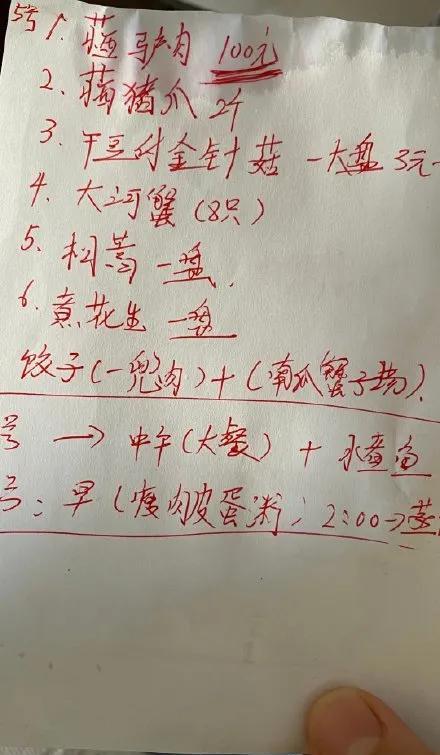 5号 1. 驴肉 100元
2. 猪爪 2个
3. 干豆付金针菇 一大盘 3元
4. 大河蟹 (8只)
5. 一盘.
6. 花生 一盘
饺子(一兜肉)+(南瓜蟹子汤).
号 → 中午(大餐) + 水煮鱼
号: 早(瘦肉皮蛋粥; 2:00→